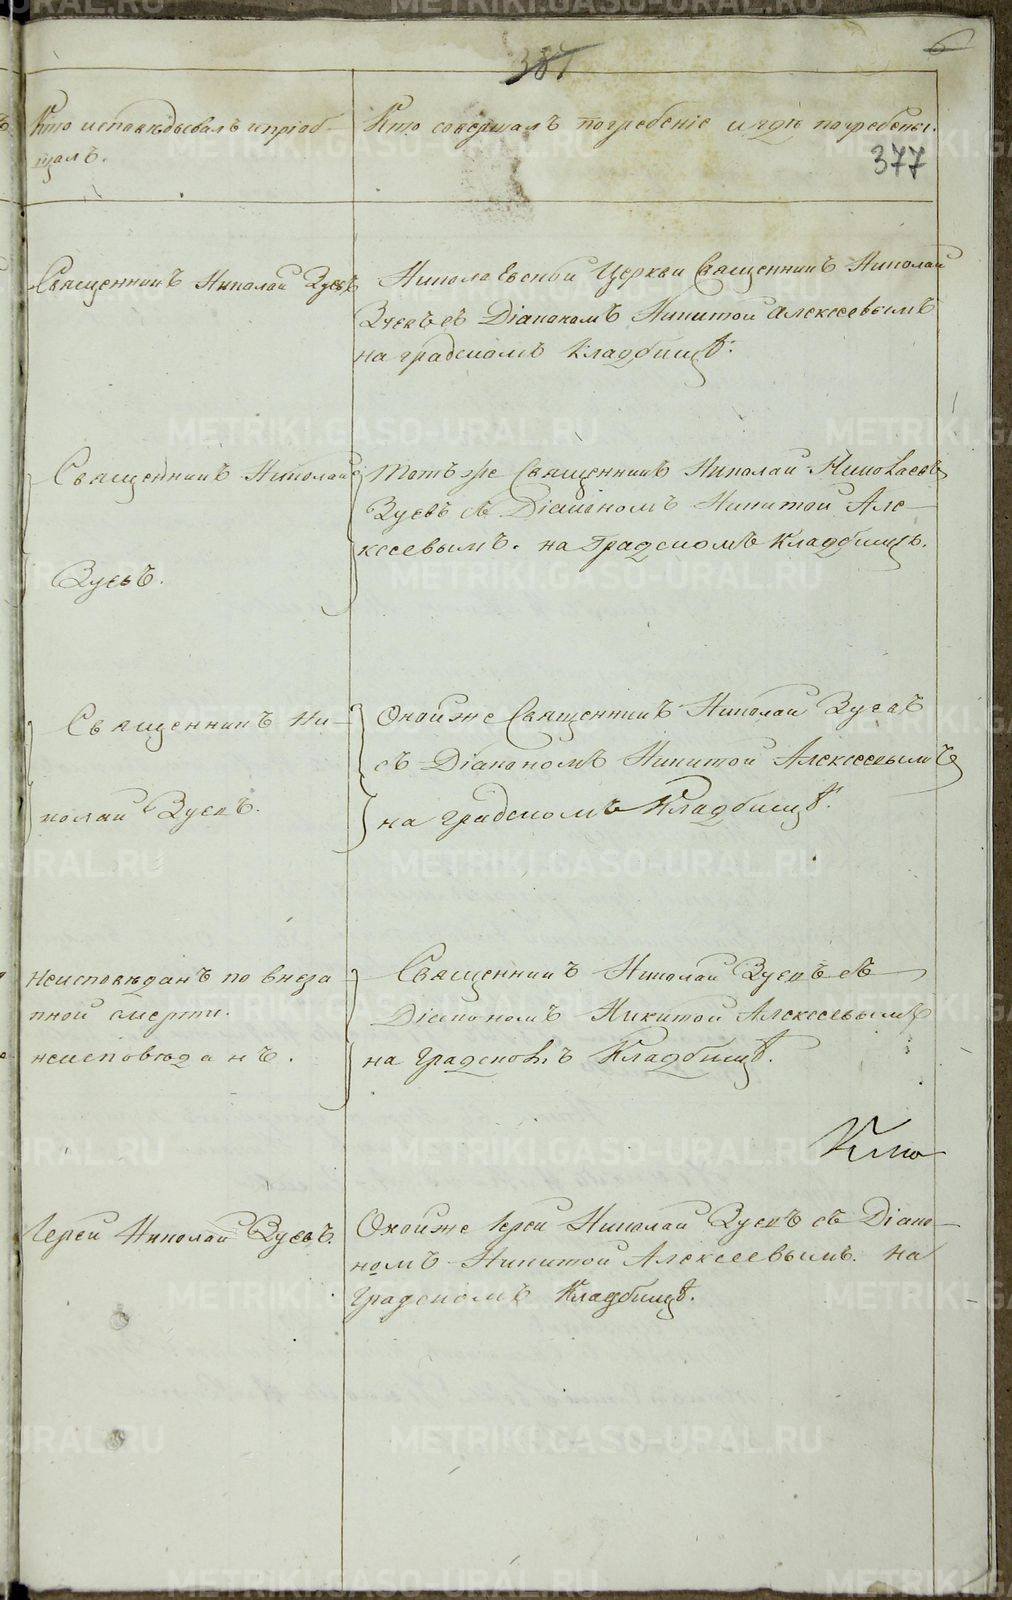 387
6
Кто исповѣдывалъ и пріоб-
щалъ.
Кто совершалъ погребеніе и гдѣ погребены.
377
Священникъ Николай Зуевъ
Николаевской Церкви Священникъ Николай
Зуевъ съ Діакономъ Никитой Алексеевымъ
на градскомъ Кладбищѣ.
Священникъ Николай
Зуевъ.
Тотъ же Священникъ Николай Николаевъ
Зуевъ съ Діакономъ Никитой Але-
ксеевымъ. на Градскомъ Кладбищѣ.
Священникъ Ни-
колай Зуевъ.
Онойже Священникъ Николай Зуевъ
съ Діакономъ Никитой Алексеевымъ
на градскомъ Кладбищѣ.
Неисповѣданъ по внеза
пной смерти.
неисповѣданъ.
Священникъ Николай Зуевъ съ
Діакономъ Никитой Алексеевымъ
на Градскомъ Кладбищѣ.
Кто
Іерей Николай Зуевъ.
Онойже Іерей Николай Зуевъ съ Діако-
номъ Никитой Алексеевымъ. на
Градскомъ Кладбищѣ.
METRIKI.GASO-URAL.RU